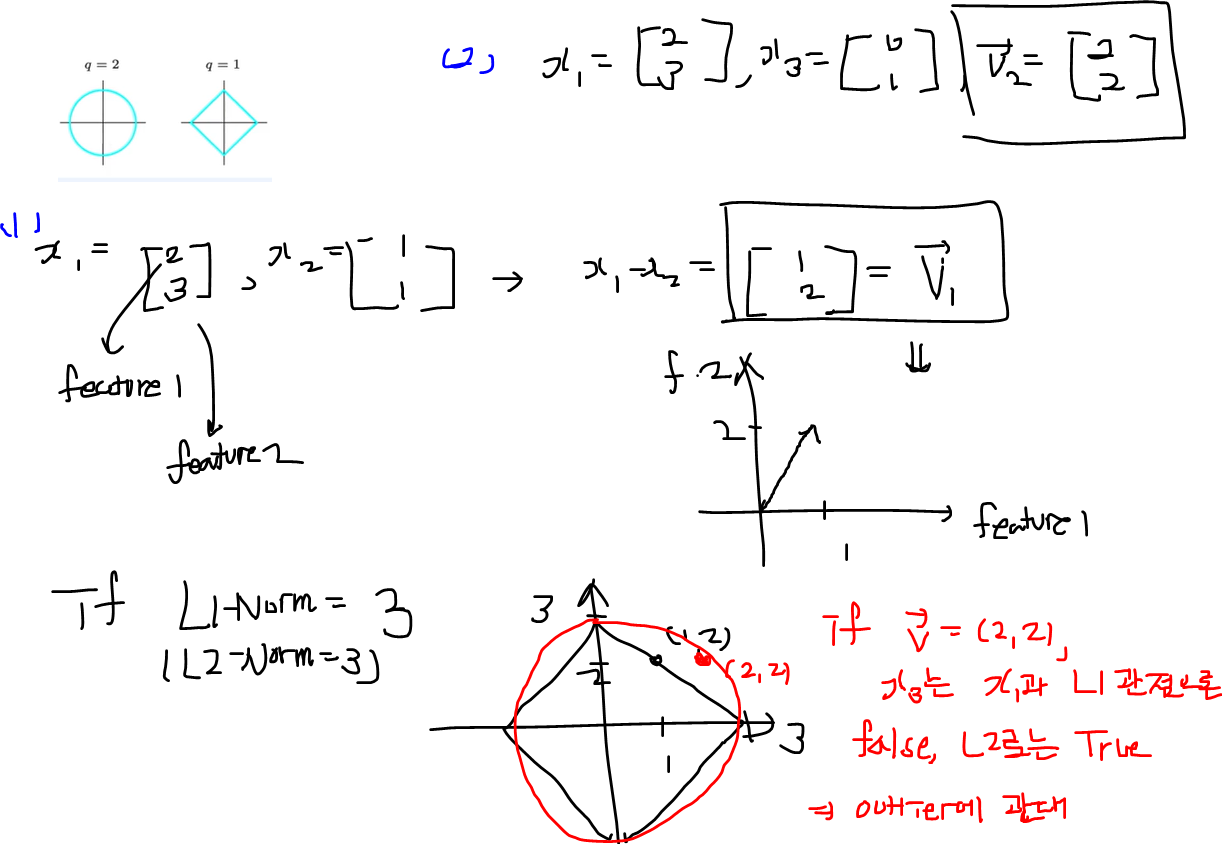 q = 2 q = 1
(2) x₁ = [2 3], x₃ = [0 1], V₂ = [2 2]
(1) x₁ = [2 3], x₂ = [1 1] → x₁-x₂ = [1 2] = V₁
⇓
feature 1
feature 2
f.2
2
feature 1
1
If L1-Norm = 3
(L2-Norm=3)
3
2
(1, 2)
(2, 2)
3
1
If V = (2, 2),
x₃는 x₁과 L1 관점으론
false, L2로는 True
⇒ outlier에 관대